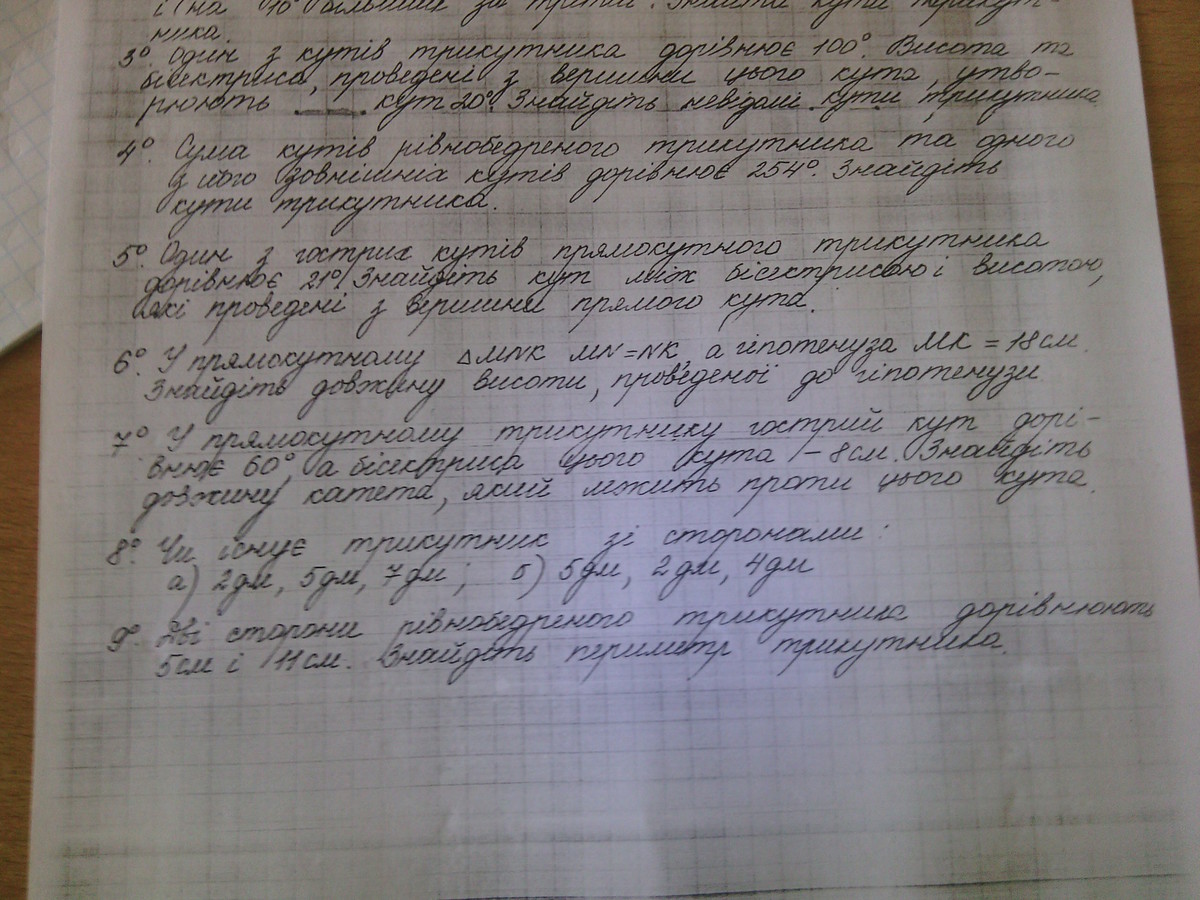 і на 10° більший за третій. Знайти кути трикут-
ника.
3°. Один з кутів трикутника дорівнює 100°. Висота та
бісектриса, проведені з вершини цього кута, утво-
рюють кут 20°. Знайдіть невідомі кути трикутника
4°. Сума кутів рівнобедреного трикутника та одного
з його зовнішніх кутів дорівнює 254°. Знайдіть
кути трикутника.
5°. Один з гострих кутів прямокутного трикутника
дорівнює 21°. Знайдіть кут між бісектрисою і висотою,
які проведені з вершини прямого кута.
6°. У прямокутному △MNK MN=NK, а гіпотенуза MK = 18 см.
Знайдіть довжину висоти, проведеної до гіпотенузи
7°. У прямокутному трикутнику гострий кут дорі-
внює 60°, а бісектриса цього кута – 8 см. Знайдіть
довжину катета, який лежить проти цього кута.
8°. Чи існує трикутник зі сторонами:
а) 2 дм, 5 дм, 7 дм; б) 5 дм, 2 дм, 4 дм
9°. Дві сторони рівнобедреного трикутника дорівнюють
5 см і 11 см. Знайдіть периметр трикутника.